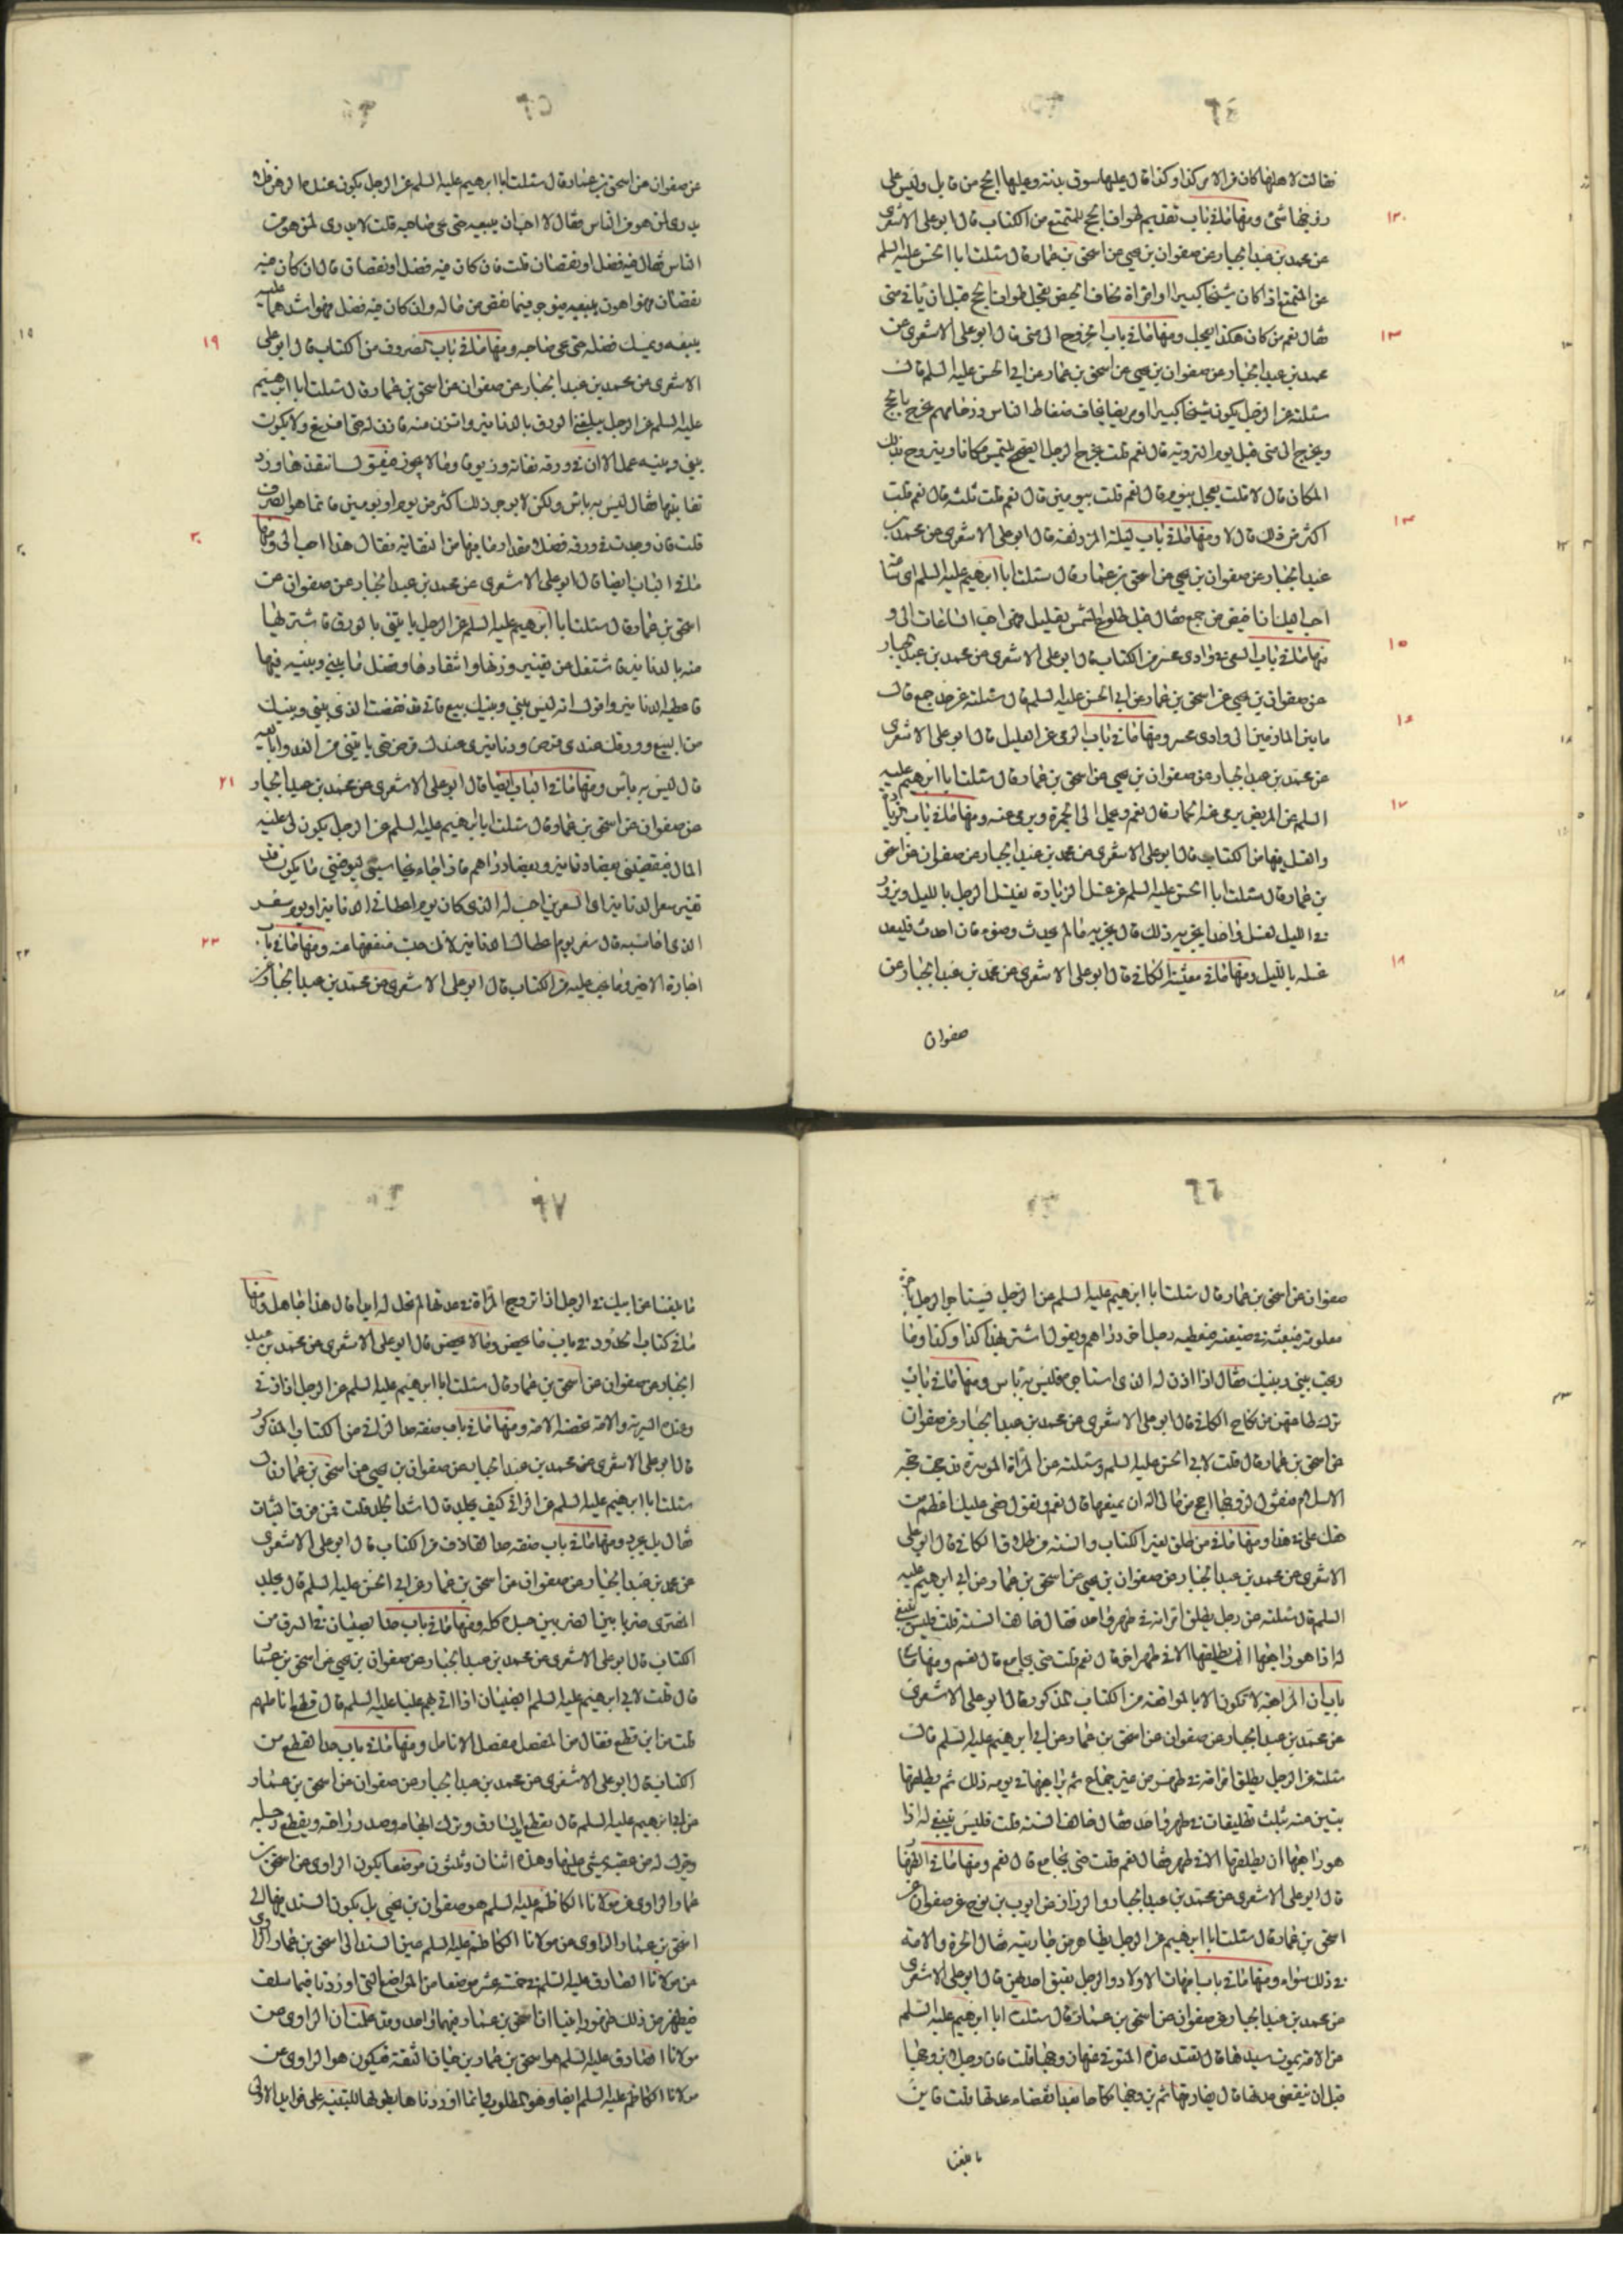 فقالت لاهلها كان من الامر كذا وكذا قال عليها سوق بدنة وعليها الحج من قابل وليس على
زوجها شئ ومنها ما في باب تقديم طواف الحج للمتمتع من الكتاب قال ابو على الاشعرى
عن محمد بن عبد الجبار عن صفوان بن يحيى عن اسحق بن عمار قال سئلت ابا الحسن عليه السلم
عن المتمتع اذا كان شيخا كبيرا او امراة تخاف الحيض يعجل طواف الحج قبل ان ياتى منى
فقال نعم من كان هكذا يعجل ومنها ما في باب الخروج الى منى قال ابو على الاشعرى عن
محمد بن عبد الجبار عن صفوان بن يحيى عن اسحق بن عمار عن ابي الحسن عليه السلم قال
سئلته عن الرجل يكون شيخا كبيرا او مريضا يخاف ضغاط الناس وزحامهم يحرم بالحج
ويخرج الى منى قبل يوم التروية قال نعم قلت يخرج الرجل الصحيح يلتمس مكانا ويتروح بذلك
المكان قال لا قلت يعجل بيوم قال نعم قلت بيومين قال نعم قلت ثلثه قال نعم قلت
اكثر من ذلك قال لا ومنها ما في باب ليلة المزدلفة قال ابو على الاشعرى عن محمد بن
عبد الجبار عن صفوان بن يحيى عن اسحق بن عمار قال سئلت ابا ابرهيم عليه السلم اى ساعة
احب اليك ان افيض من جمع فقال قبل طلوع الشمس بقليل فهى احب الساعات الى و
منها ما في باب السعى في وادى محسر من الكتاب قال ابو على الاشعرى عن محمد بن عبد الجبار
عن صفوان بن يحيى عن اسحق بن عمار عن ابي الحسن عليه السلم قال سئلته عن حد جمع قال
ما بين المازمين الى وادى محسر ومنها ما في باب الرمى عن العليل قال ابو على الاشعرى
عن محمد بن عبد الجبار عن صفوان بن يحيى عن اسحق بن عمار قال سئلت ابا ابرهيم عليه
السلم عن المريض يرمى عنه الجمار قال نعم ويحمل الى الجمرة ويرمى عنه ومنها ما في باب الزيارة
والغسل فيها من الكتاب قال ابو على الاشعرى عن محمد بن عبد الجبار عن صفوان عن اسحق
بن عمار قال سئلت ابا الحسن عليه السلم عن غسل الزيارة يغتسل الرجل بالليل ويزور
في الليل بغسل واحد ايجزيه ذلك قال يجزيه ما لم يحدث وضوء فان احدث فليعد
غسله بالليل ومنها ما في معيشة الكافي قال ابو على الاشعرى عن محمد بن عبد الجبار عن
صفوان
عن صفوان عن اسحق بن عمار قال سئلت ابا ابرهيم عليه السلم عن الرجل يكون عنده
يدرى لمن هو من الناس فقال لا احب ان يبيعه حتى يجئ صاحبه قلت لا يدرى لمن هو من
الناس فقال فيه فضل او نقصان قلت فان كان فيه فضل او نقصان قال ان كان فيه
نقصان فهو اهون يبيعه فيوجر فيما نقص من ماله وان كان فيه فضل فهو اشدهما عليه
يبيعه ويمسك فضله حتى يجئ صاحبه ومنها ما في باب الصروف من الكتاب قال ابو على
الاشعرى عن محمد بن عبد الجبار عن صفوان عن اسحق بن عمار قال سئلت ابا ابرهيم
عليه السلم عن الرجل يبيعنى الورق بالدنانير واتزن منه فازن له حتى افرغ ولا يكون
بينى وبينه عمل الا ان في ورقه نفاية وزيوفا وما لا يجوز فيقول انتقدها ورد
نفايتها فقال ليس به باس ولكن لا يوخر ذلك اكثر من يوم او يومين فانما هو الصرف
قلت فان وجدت في ورقه فضلا مقدار ما فيها من النفاية فقال هذا احب الى ومنها
ما في الباب ايضا قال ابو على الاشعرى عن محمد بن عبد الجبار عن صفوان عن
اسحق بن عمار قال سئلت ابا ابرهيم عليه السلم عن الرجل ياتينى بالورق فاشتريها
منه بالدنانير فاشتغل عن تعيير وزنها وانتقادها وفضل ما بينى وبينه فيها
فاعطيه الدنانير واقول انه ليس بينى وبينك بيع فاني قد نقضت الذى بينى وبينك
من البيع وورقك عندى قرض ودنانيرى عندك قرض حتى ياتينى من الغد وابايعه
قال ليس به باس ومنها ما في الباب ايضا قال ابو على الاشعرى عن محمد بن عبد الجبار
عن صفوان عن اسحق بن عمار قال سئلت ابا ابرهيم عليه السلم عن الرجل يكون لى عليه
المال فيقضينى بعضا دنانير وبعضا دراهم فاذا جاء يحاسبنى ليوفينى ما يكون قد
تغير سعر الدنانير اى السعرين احسب له الذى كان يوم اعطاني الدنانير او يوم سعر
الذى احاسبه قال سعر يوم اعطاك الدنانير لانك حبست منفعتها عنه ومنها ما في باب
اجارة الاجير وما يجب عليه من الكتاب قال ابو على الاشعرى عن محمد بن عبد الجبار عن
صفوان عن اسحق بن عمار قال سئلت ابا ابرهيم عليه السلم عن الرجل يستاجر الرجل باجرة
معلومة فيبعثه في ضيعته فيعطيه رجل اخر دراهم ويقول اشتر بهذا كذا وكذا وما
ربحت بينى وبينك فقال اذا اذن له الذى استاجره فليس به باس ومنها ما في باب
عن اسحق بن عمار قال قلت لابي الحسن عليه السلم وسئلته عن المراة الموسرة قد حجت حجة
الاسلام فتقول لزوجها احجنى من مالى اله ان يمنعها قال نعم ويقول حقى عليك اعظم من
حقك على في هذا ومنها ما في من طلق لغير الكتاب والسنة من طلاق الكافي قال ابو على
الاشعرى عن محمد بن عبد الجبار عن صفوان بن يحيى عن اسحق بن عمار عن ابي ابرهيم عليه
السلم قال سئلته عن رجل يطلق امراته في طهر واحد فقال خالف السنة قلت فليس ينبغى
له اذا هو راجعها ان يطلقها الا في طهر اخر قال نعم قلت حتى يجامع قال نعم ومنها ما في
باب ان المراجعة لا تكون الا بالمواقعة من الكتاب المذكور قال ابو على الاشعرى
عن محمد بن عبد الجبار عن صفوان عن اسحق بن عمار عن ابي ابرهيم عليه السلم قال
سئلته عن الرجل يطلق امراته في طهر من غير جماع ثم يراجعها في يومه ذلك ثم يطلقها
تبين منه بثلث تطليقات في طهر واحد فقال خالف السنة قلت فليس ينبغى له اذا
هو راجعها ان يطلقها الا في طهر فقال نعم قلت حتى يجامع قال نعم ومنها ما في
قال ابو على الاشعرى عن محمد بن عبد الجبار والرزاز عن ايوب بن نوح عن صفوان عن
اسحق بن عمار قال سئلت ابا ابرهيم عن الرجل يظاهر من جاريته فقال الحرة والامة
في ذلك سواء ومنها ما في باب امهات الاولاد والرجل يعتق احدهن قال ابو على الاشعرى
عن محمد بن عبد الجبار عن صفوان عن اسحق بن عمار قال سئلت ابا ابرهيم عليه السلم
عن الامة يموت سيدها قال تعتد عدة المتوفى عنها زوجها قلت فان رجلا تزوجها
قبل ان تنقضى عدتها قال يفارقها ثم يتزوجها نكاحا جديدا بعد انقضاء عدتها قلت فاين
ما بلغنا
ما بلغنا عن ابيك في الرجل اذا تزوج المراة في عدتها لم تحل له ابدا قال هذا جاهل ومنها
ما في كتاب الحدود في باب ما يحصن وما لا يحصن قال ابو على الاشعرى عن محمد بن عبد
الجبار عن صفوان عن اسحق بن عمار قال سئلت ابا ابرهيم عليه السلم عن الرجل اذا زنى
وعنده السرية والامة تحصنه الامة ومنها ما في باب صفة حد الزاني من الكتاب المذكور
قال ابو على الاشعرى عن محمد بن عبد الجبار عن صفوان بن يحيى عن اسحق بن عمار قال
سئلت ابا ابرهيم عليه السلم عن الزاني كيف يجلد قال اشد الجلد قلت فمن فوق الثياب
فقال بل يجرد ومنها ما في باب صفة حد القاذف من الكتاب قال ابو على الاشعرى
عن محمد بن عبد الجبار عن صفوان عن اسحق بن عمار عن ابي الحسن عليه السلم قال يجلد
المفترى ضربا بين الضربين جسده كله ومنها ما في باب حد الصبيان في السرق من
الكتاب قال ابو على الاشعرى عن محمد بن عبد الجبار عن صفوان بن يحيى عن اسحق بن عمار
قال قلت لابي ابرهيم عليه السلم الصبيان اذا اتى بهم عليا عليه السلم قال قطع اناملهم
قلت من اين قطع فقال من المفصل مفصل الانامل ومنها ما في باب حد القطع من
الكتاب قال ابو على الاشعرى عن محمد بن عبد الجبار عن صفوان عن اسحق بن عمار
عن ابي ابرهيم عليه السلم قال يقطع يد السارق ويترك ابهامه وصدر راحته ويقطع رجله
ويترك له من عقبه يمشى عليها وهذه اثنان وثلثون موضعا يكون الراوى عن اسحق بن
عمار الراوى عن مولانا الكاظم عليه السلم هو صفوان بن يحيى بل يكون السند فيها الى
اسحق بن عمار الراوى عن مولانا الكاظم عليه السلم عين السند الى اسحق بن عمار الراوى
عن مولانا الصادق عليه السلم في خمسة عشر موضعا من المواضع التى اوردنا فيما سلف
فيظهر من ذلك ظهورا بينا ان اسحق بن عمار فيهما واحد وقد علمت ان الراوى عن
مولانا الصادق عليه السلم هو اسحق بن عمار بن حيان الثقة فيكون هو الراوى عن
مولانا الكاظم عليه السلم ايضا وهو المطلوب وانما اوردناها بطولها للتنبيه على فوايد الاولى